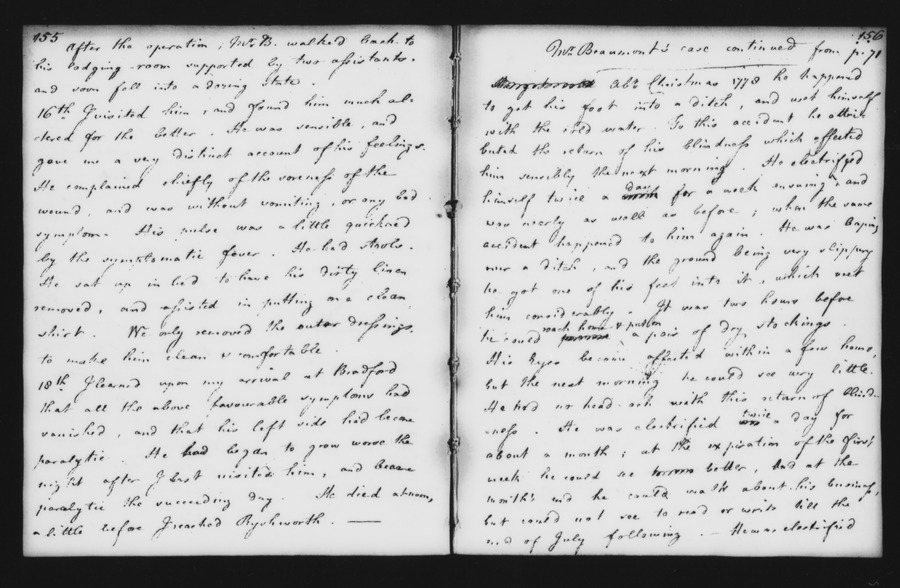 155
After the operation, Mr. B. walked back to
his lodging-room supported by two assistants,
and soon fell into a dozing state.
16th I visited him, and found him much al-
tered for the better. He was sensible, and
gave me a very distinct account of his feelings.
He complained chiefly of the soreness of the
wound, and was without vomiting, or any bad
symptom. His pulse was a little quickned
by the symptomatic fever. He had stools.
He sat up in bed to have his dirty linen
removed, and assisted in putting on a clean
shirt. We only removed the outer dressings,
to make him clean & comfortable.
18th I learned upon my arrival at Bradford
that all the above favourable symptoms had
vanished, and that his left side had became
paralytic. He had began to grow worse the
night after I last visited him, and became
paralytic the succeeding day. He died at noon,
a little before I reached Ryshworth. —
156
Mr. Beaumont's case continued from p. 71
Abt. Christmas 1778 he happened
to get his foot into a ditch, and wet himself
with the cold water. To this accident he attri-
buted the return of his blindness which affected
him sensibly the next morning. He electrified
himself twice a day for a week ensuing, and
was nearly as well as before; when the same
accident happened to him again. He was leaping
over a ditch, and the ground being very slippery
he got one of his feet into it, which wet
him considerably. It was two hours before
he could reach home & put on a pair of dry stockings.
His Eyes became affected within a few hours,
but the next morning he could see very little.
He had no head-ach with this return of blind-
-ness. He was electrified twice a day for
about a month; at the expiration of the first
week he could see better, And at the
month's end he could walk about his business,
but could not see to read or write till the
end of July following. — He was electrified